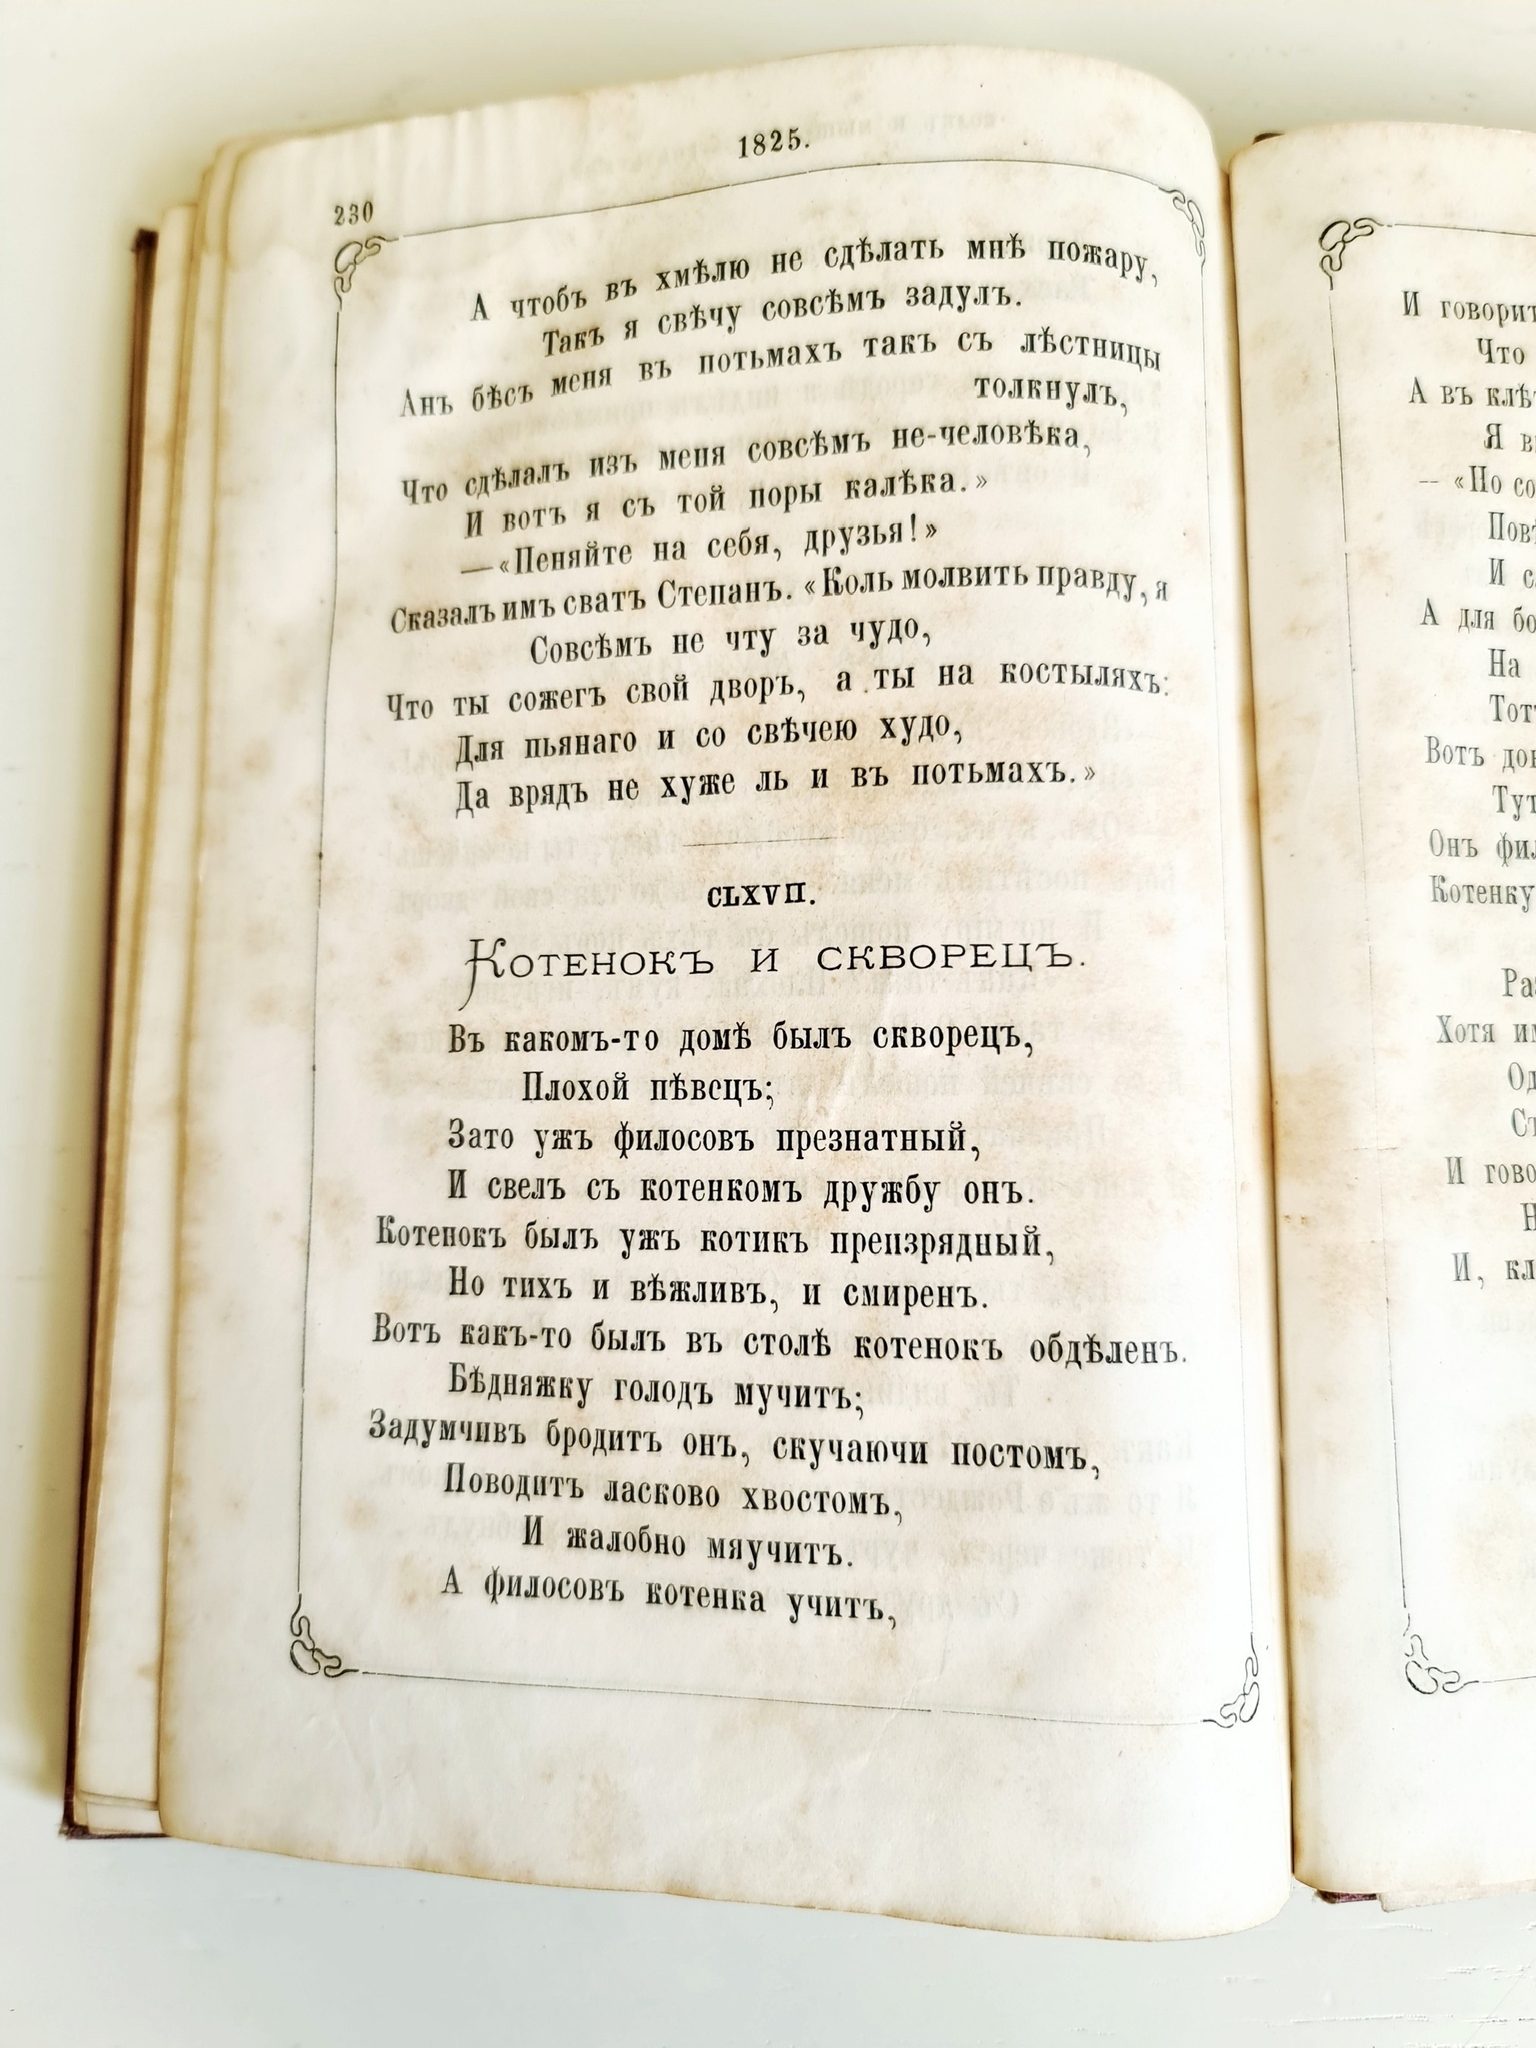 1825.
230
А чтобъ въ хмѣлю не сдѣлать мнѣ пожару,
Такъ я свѣчу совсѣмъ задулъ.
Анъ бѣсъ меня въ потьмахъ такъ съ лѣстницы
толкнулъ,
Что сдѣлалъ изъ меня совсѣмъ не-человѣка,
И вотъ я съ той поры калѣка.»
—«Пеняйте на себя, друзья!»
Сказалъ имъ сватъ Степанъ. «Коль молвить правду, я
Совсѣмъ не чту за чудо,
Что ты сожегъ свой дворъ, а ты на костыляхъ:
Для пьянаго и со свѣчею худо,
Да врядъ не хуже ль и въ потьмахъ.»
CLXVII.
Котенокъ и скворецъ.
Въ какомъ-то домѣ былъ скворецъ,
Плохой пѣвецъ;
Зато ужъ филосовъ презнатный,
И свелъ съ котенкомъ дружбу онъ.
Котенокъ былъ ужъ котикъ преизрядный,
Но тихъ и вѣжливъ, и смиренъ.
Вотъ какъ-то былъ въ столѣ котенокъ обдѣленъ.
Бѣдняжку голодъ мучитъ;
Задумчивъ бродитъ онъ, скучаючи постомъ,
Поводитъ ласково хвостомъ,
И жалобно мяучитъ.
А филосовъ котенка учитъ,
И
Что
А въ
Я
— «Но
И
А для
На
Вотъ
Онъ
Котенку
Хотя
И
И,